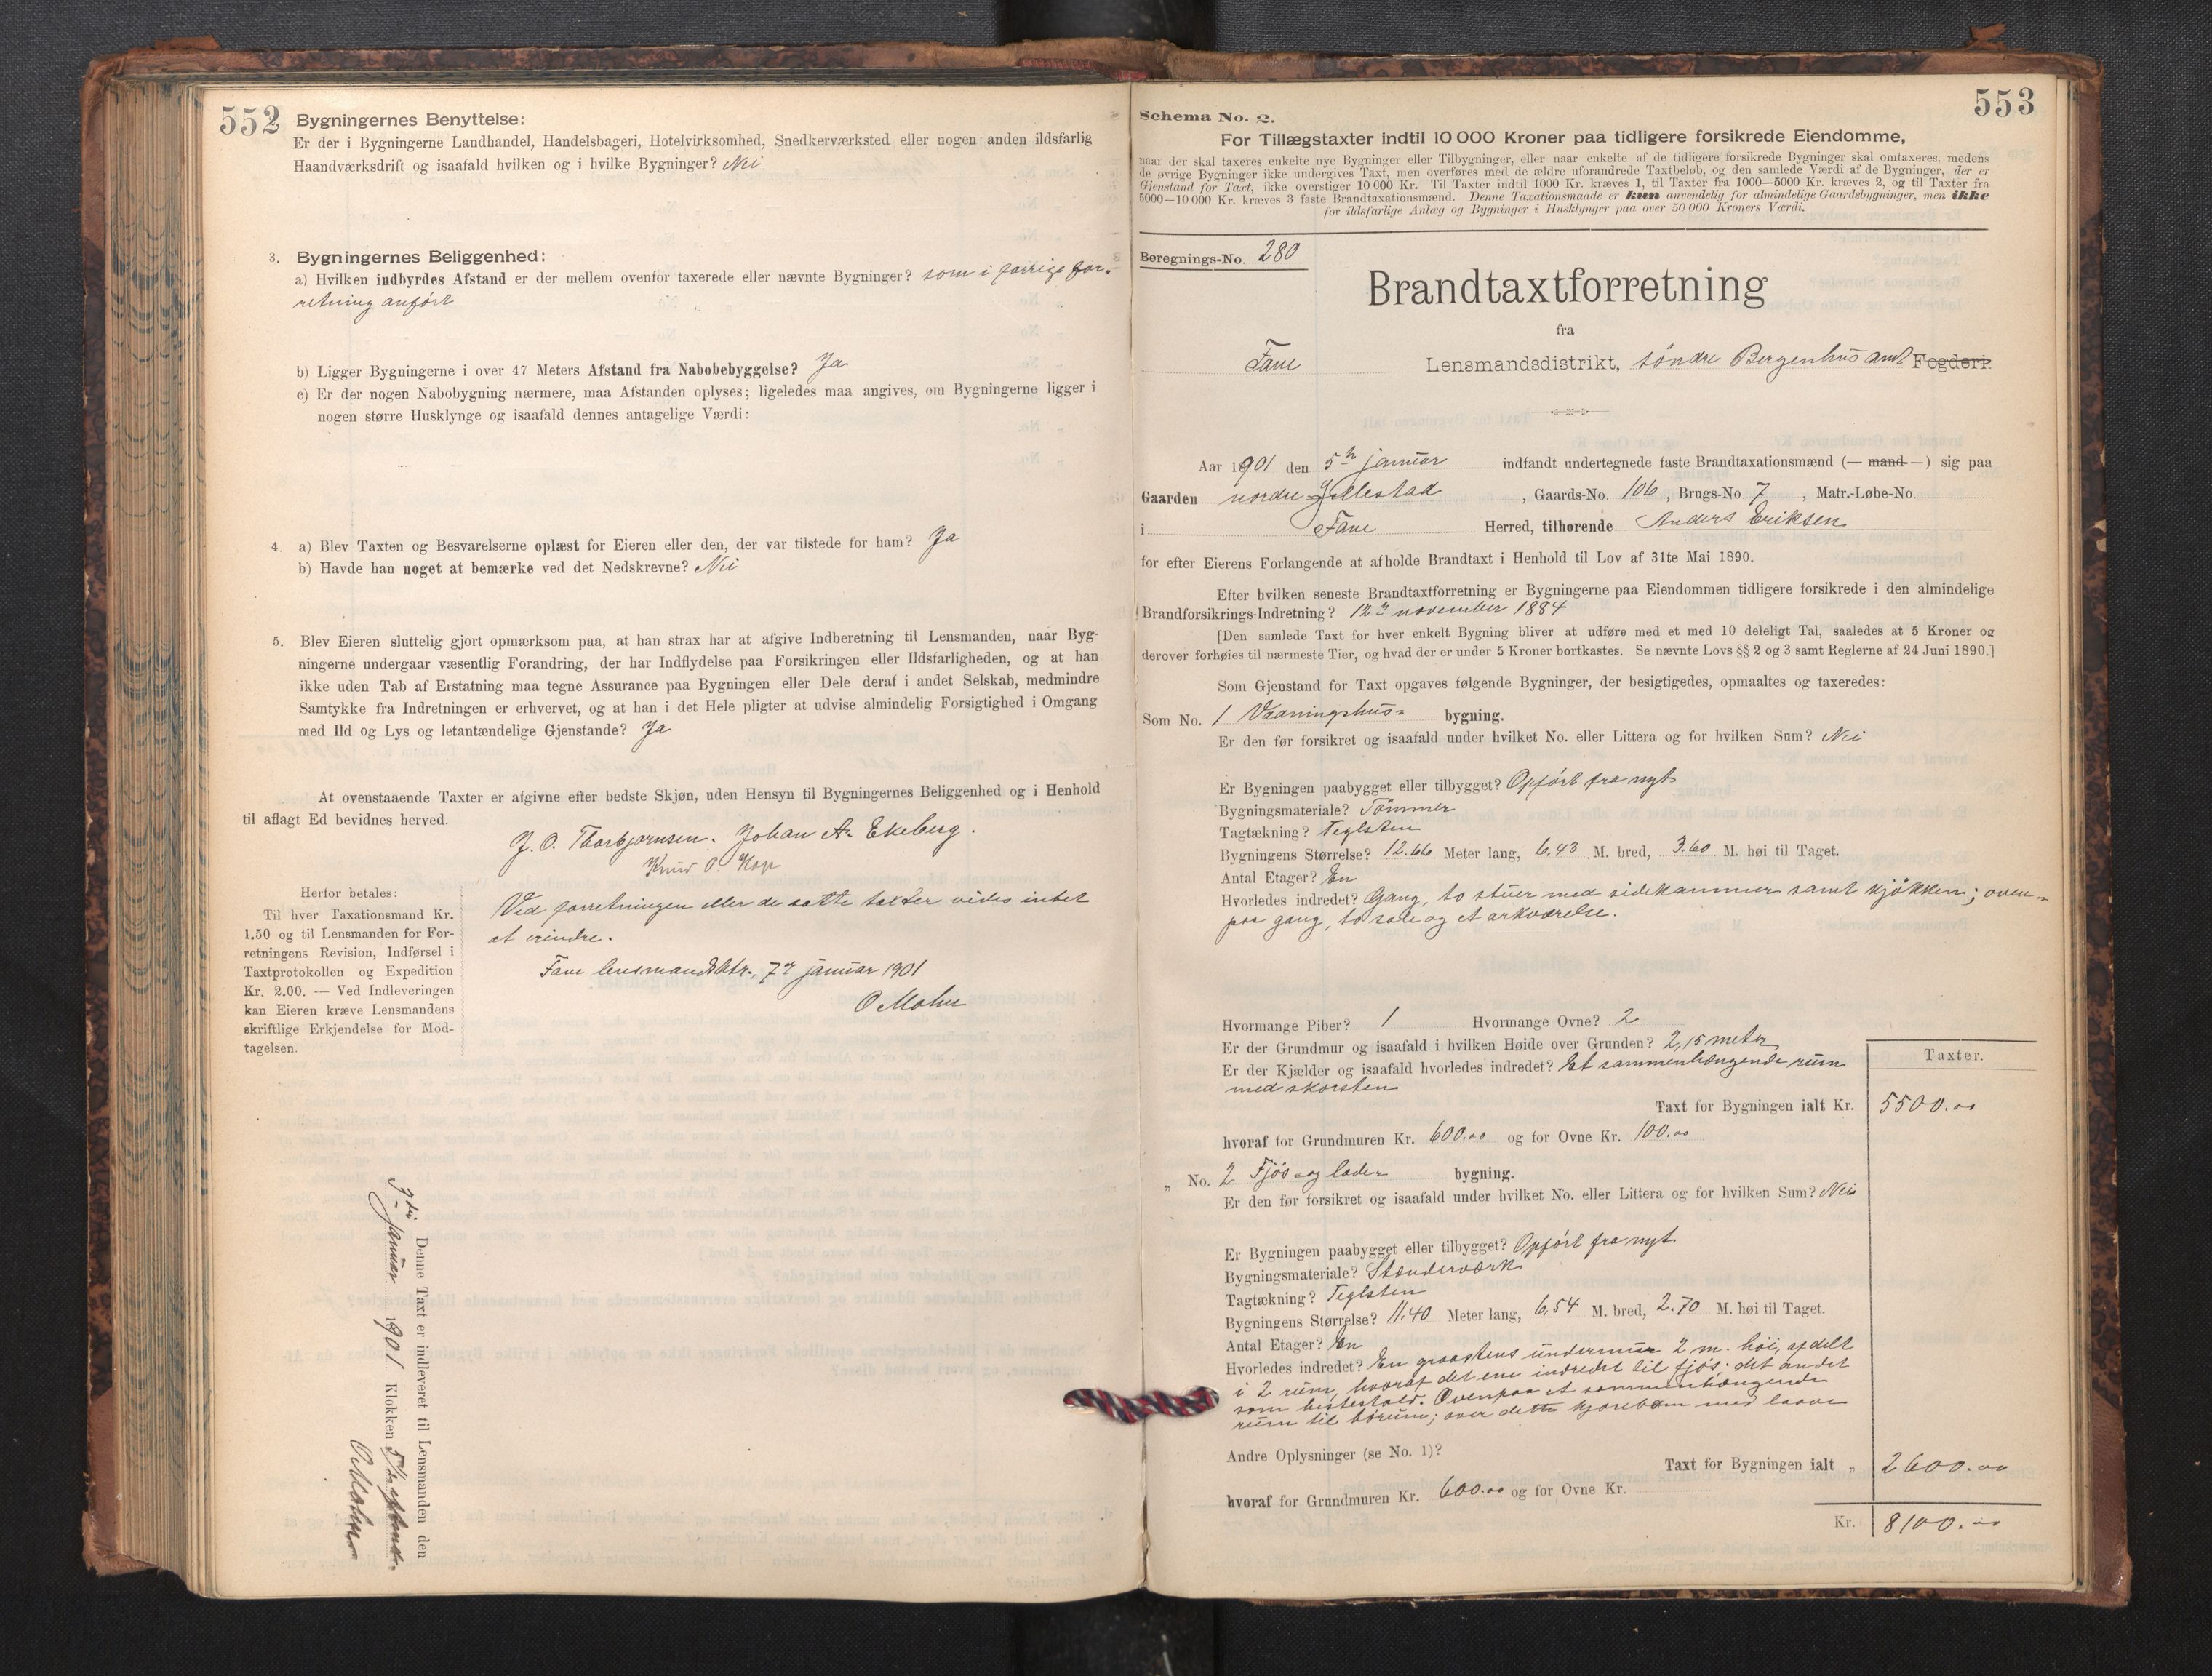 552
Bygningernes Benyttelse:
Er der i Bygningerne Landhandel, Handelsbageri, Hotelvirksomhed, Snedkerværksted eller nogen anden ildsfarlig
Haandværksdrift og isaafald hvilken og i hvilke Bygninger? Nei.
3. Bygningernes Beliggenhed:
a) Hvilken indbyrdes Afstand er der mellem ovenfor taxerede eller nævnte Bygninger? som i forrige for-
retning anført
b) Ligger Bygningerne i over 47 Meters Afstand fra Nabobebyggelse? Ja
c) Er der nogen Nabobygning nærmere, maa Afstanden oplyses; ligeledes maa angives, om Bygningerne ligger i
nogen større Husklynge og isaafald dennes antagelige Værdi:
4. a) Blev Taxten og Besvarelserne oplæst for Eieren eller den, der var tilstede for ham? Ja
b) Havde han noget at bemærke ved det Nedskrevne? Nei
5. Blev Eieren sluttelig gjort opmærksom paa, at han strax har at afgive Indberetning til Lensmanden, naar Byg-
ningerne undergaar væsentlig Forandring, der har Indflydelse paa Forsikringen eller Ildsfarligheden, og at han
ikke uden Tab af Erstatning maa tegne Assurance paa Bygningen eller Dele deraf i andet Selskab, medmindre
Samtykke fra Indretningen er erhvervet, og at han i det Hele pligter at udvise almindelig Forsigtighed i Omgang
med Ild og Lys og letantændelige Gjenstande? Ja
At ovenstaaende Taxter er afgivne efter bedste Skjøn, uden Hensyn til Bygningernes Beliggenhed og i Henhold
til aflagt Ed bevidnes herved.
J. O. Thorbjørnsen. Johan A. Ekeberg.
Knud P. Hop
Herfor betales:
Til hver Taxationsmand Kr.
1.50 og til Lensmanden for For-
retningens Revision, Indførsel i
Taxtprotokollen og Expedition
Kr. 2.00. — Ved Indleveringen
kan Eieren kræve Lensmandens
skriftlige Erkjendelse for Mod-
tagelsen.
Ved forretningen eller de satte takster vides intet
at erindre.
Fane lensmandsktr., 7de januar 1901
O Mohn
Denne Taxt er indleveret til Lensmanden den
januar 1901 Klokken
O Mohn
553
Schema No. 2.
For Tillægstaxter indtil 10 000 Kroner paa tidligere forsikrede Eiendomme,
naar der skal taxeres enkelte nye Bygninger eller Tilbygninger, eller naar enkelte af de tidligere forsikrede Bygninger skal omtaxeres, medens
de øvrige Bygninger ikke undergives Taxt, men overføres med de ældre uforandrede Taxtbeløb, og den samlede Værdi af de Bygninger, der er
Gjenstand for Taxt, ikke overstiger 10 000 Kr. Til Taxter indtil 1000 Kr. kræves 1, til Taxter fra 1000—5000 Kr. kræves 2, og til Taxter fra
5000—10 000 Kr. kræves 3 faste Brandtaxationsmænd. Denne Taxationsmaade er kun anvendelig for almindelige Gaardsbygninger, men ikke
for ildsfarlige Anlæg og Bygninger i Husklynger paa over 50 000 Kroners Værdi.
Beregnings-No. 280
Brandtaxtforretning
fra
Fane Lensmandsdistrikt, søndre Bergenhus amt Fogderi.
Aar 1901 den 5te januar indfandt undertegnede faste Brandtaxationsmænd (— mand —) sig paa
Gaarden nordre Gjellestad, Gaards-No. 106, Brugs-No 7, Matr.-Løbe-No.
i Fane Herred, tilhørende Anders Eriksen
for efter Eierens Forlangende at afholde Brandtaxt i Henhold til Lov af 31te Mai 1890.
Efter hvilken seneste Brandtaxtforretning er Bygningerne paa Eiendommen tidligere forsikrede i den almindelige
Brandforsikrings-Indretning? 12te november 1884
[Den samlede Taxt for hver enkelt Bygning bliver at udføre med et med 10 deleligt Tal, saaledes at 5 Kroner og
derover forhøies til nærmeste Tier, og hvad der er under 5 Kroner bortkastes. Se nævnte Lovs §§ 2 og 3 samt Reglerne af 24 Juni 1890.]
Som Gjenstand for Taxt opgaves følgende Bygninger, der besigtigedes, opmaaltes og taxeredes:
Som No. 1 Vaaningshus- bygning.
Er den før forsikret og isaafald under hvilket No. eller Littera og for hvilken Sum? Nei
Er Bygningen paabygget eller tilbygget? Opført fra nyt
Bygningsmateriale? Tømmer
Tagtækning? Teglsten
Bygningens Størrelse? 12.66 Meter lang, 6.43 M. bred, 3.60 M. høi til Taget.
Antal Etager? En
Hvorledes indredet? Gang, to stuer med sidekammer samt kjøkken; oven-
paa gang, to sale og et arkværelse.
Hvormange Piber? 1 Hvormange Ovne? 2
Er der Grundmur og isaafald i hvilken Høide over Grunden? 2,15 meter
Er der Kjælder og isaafald hvorledes indredet? Et sammenhængende rum
med skorsten
Taxter.
Taxt for Bygningen ialt Kr. 5500.00
hvoraf for Grundmuren Kr. 600.00 og for Ovne Kr. 100.00
„ No. 2 Fjøs- og lade- bygning.
Er den før forsikret og isaafald under hvilket No. eller Littera og for hvilken Sum? Nei
Er Bygningen paabygget eller tilbygget? Opført fra nyt
Bygningsmateriale? Stænderværk
Tagtækning? Teglsten
Bygningens Størrelse? 11.40 Meter lang, 6.54 M. bred, 2.70 M. høi til Taget.
Antal Etager? En
Hvorledes indredet? En graastens undermur 2 m. høi, afdelt
i 2 rum, hvoraf det ene indredet til fjøs; det andet
som hestestald. Ovenpaa et sammenhængende
rum til hørum; over dette kjørebom med laave
Andre Oplysninger (se No. 1)?
Taxt for Bygningen ialt „ 2600.00
hvoraf for Grundmuren Kr. 600.00 og for Ovne Kr.
Kr. 8100.00